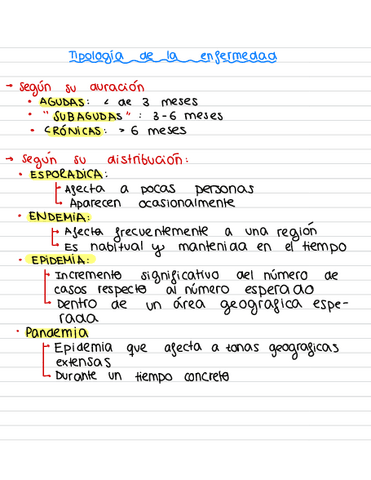 Tipología de la enfermedad
→ Según su duración
• AGUDAS: < de 3 meses
• "SUBAGUDAS": 3-6 meses
• CRÓNICAS: > 6 meses
→ Según su distribución:
• ESPORADICA:
Afecta a pocas personas
Aparecen ocasionalmente
• ENDEMIA:
Afecta frecuentemente a una región
Es habitual y mantenida en el tiempo
• EPIDEMIA:
Incremento significativo del número de
casos respecto al número esperado
Dentro de un área geografica espe-
rada
• Pandemia
Epidemia que afecta a zonas geograficas
extensas
Durante un tiempo concreto